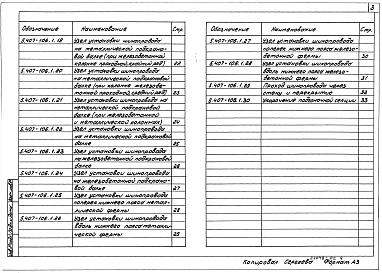 3
Обозначение Наименование Стр.
5.407-106.1.19 Узел установки шинопровода
на металлической подкрано-
вой балке (при железобетонной
22
5.407-106.1.20 Узел установки шинопровода
на металлической подкрановой
балке (при колонне железобе-
23
5.407-106.1.21 Узел установки шинопровода на
металлической подкрановой
балке (при железобетонной
и металлической колоннах) 24
5.407-106.1.22 Узел установки шинопровода
на металлической подкрановой
балке 25
5.407-106.1.23 Узел установки шинопровода
на железобетонной подкрановой
балке 26
5.407-106.1.24 Узел установки шинопровода
на железобетонной подкрано-
вой балке 27
5.407-106.1.25 Узел установки шинопровода
поперек нижнего пояса метал-
лической фермы 28
5.407-106.1.26 Узел установки шинопровода
вдоль нижнего пояса металли-
ческой фермы 29
Обозначение Наименование Стр.
5.407-106.1.27 Узел установки шинопровода
поперек нижнего пояса железо-
бетонной фермы 30
5.407-106.1.28 Узел установки шинопровода
вдоль нижнего пояса железо-
бетонной фермы 31
5.407-106.1.29 Проход шинопровода через
стену и перекрытие 32
5.407-106.1.30 секции 33
Копировал Сергеева Формат А3